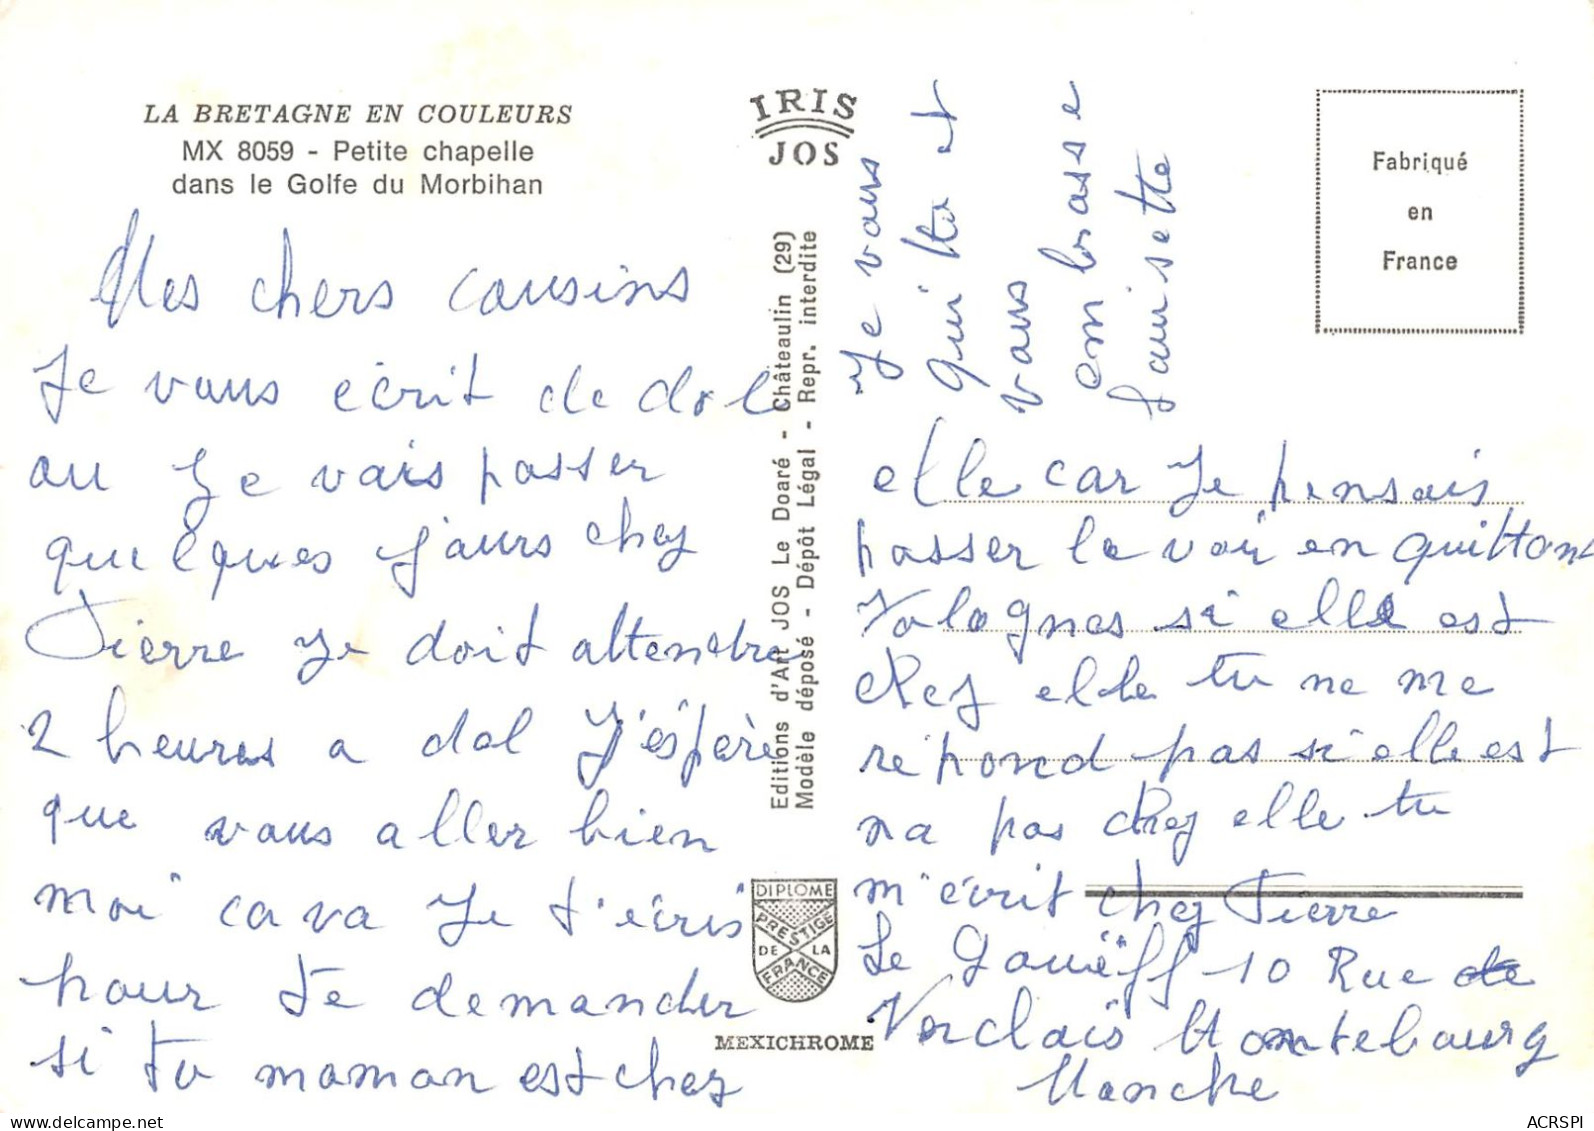 LA BRETAGNE EN COULEURS
MX 8059 - Petite chapelle
dans le Golfe du Morbihan
Mes chers cousins
Je vous écrit de dol
ou Je vais passer
quelques Jours chez
Pierre Je doit attendre
2 heures a dol J'éspère
que vous aller bien
moi ca va Je t'écris
pour te demander
si ta maman est chez
elle car Je pensais
passer la voir en quittant
Valognes si elle est
chez elle tu ne me
répond pas si elle est
na pas chez elle tu
m'écrit chez Pierre
Le Gouëff 10 Rue de
Verclaïs Montebourg
Manche
Je vous
quitte et
vous
embrasse
Louisette
IRIS
JOS
Editions d'Art JOS Le Doaré - Châteaulin (29)
Modèle déposé - Dépôt Légal - Repr. interdite
DIPLOME
PRESTIGE
DE LA
FRANCE
MEXICHROME
Fabriqué
en
France
ACRSPI